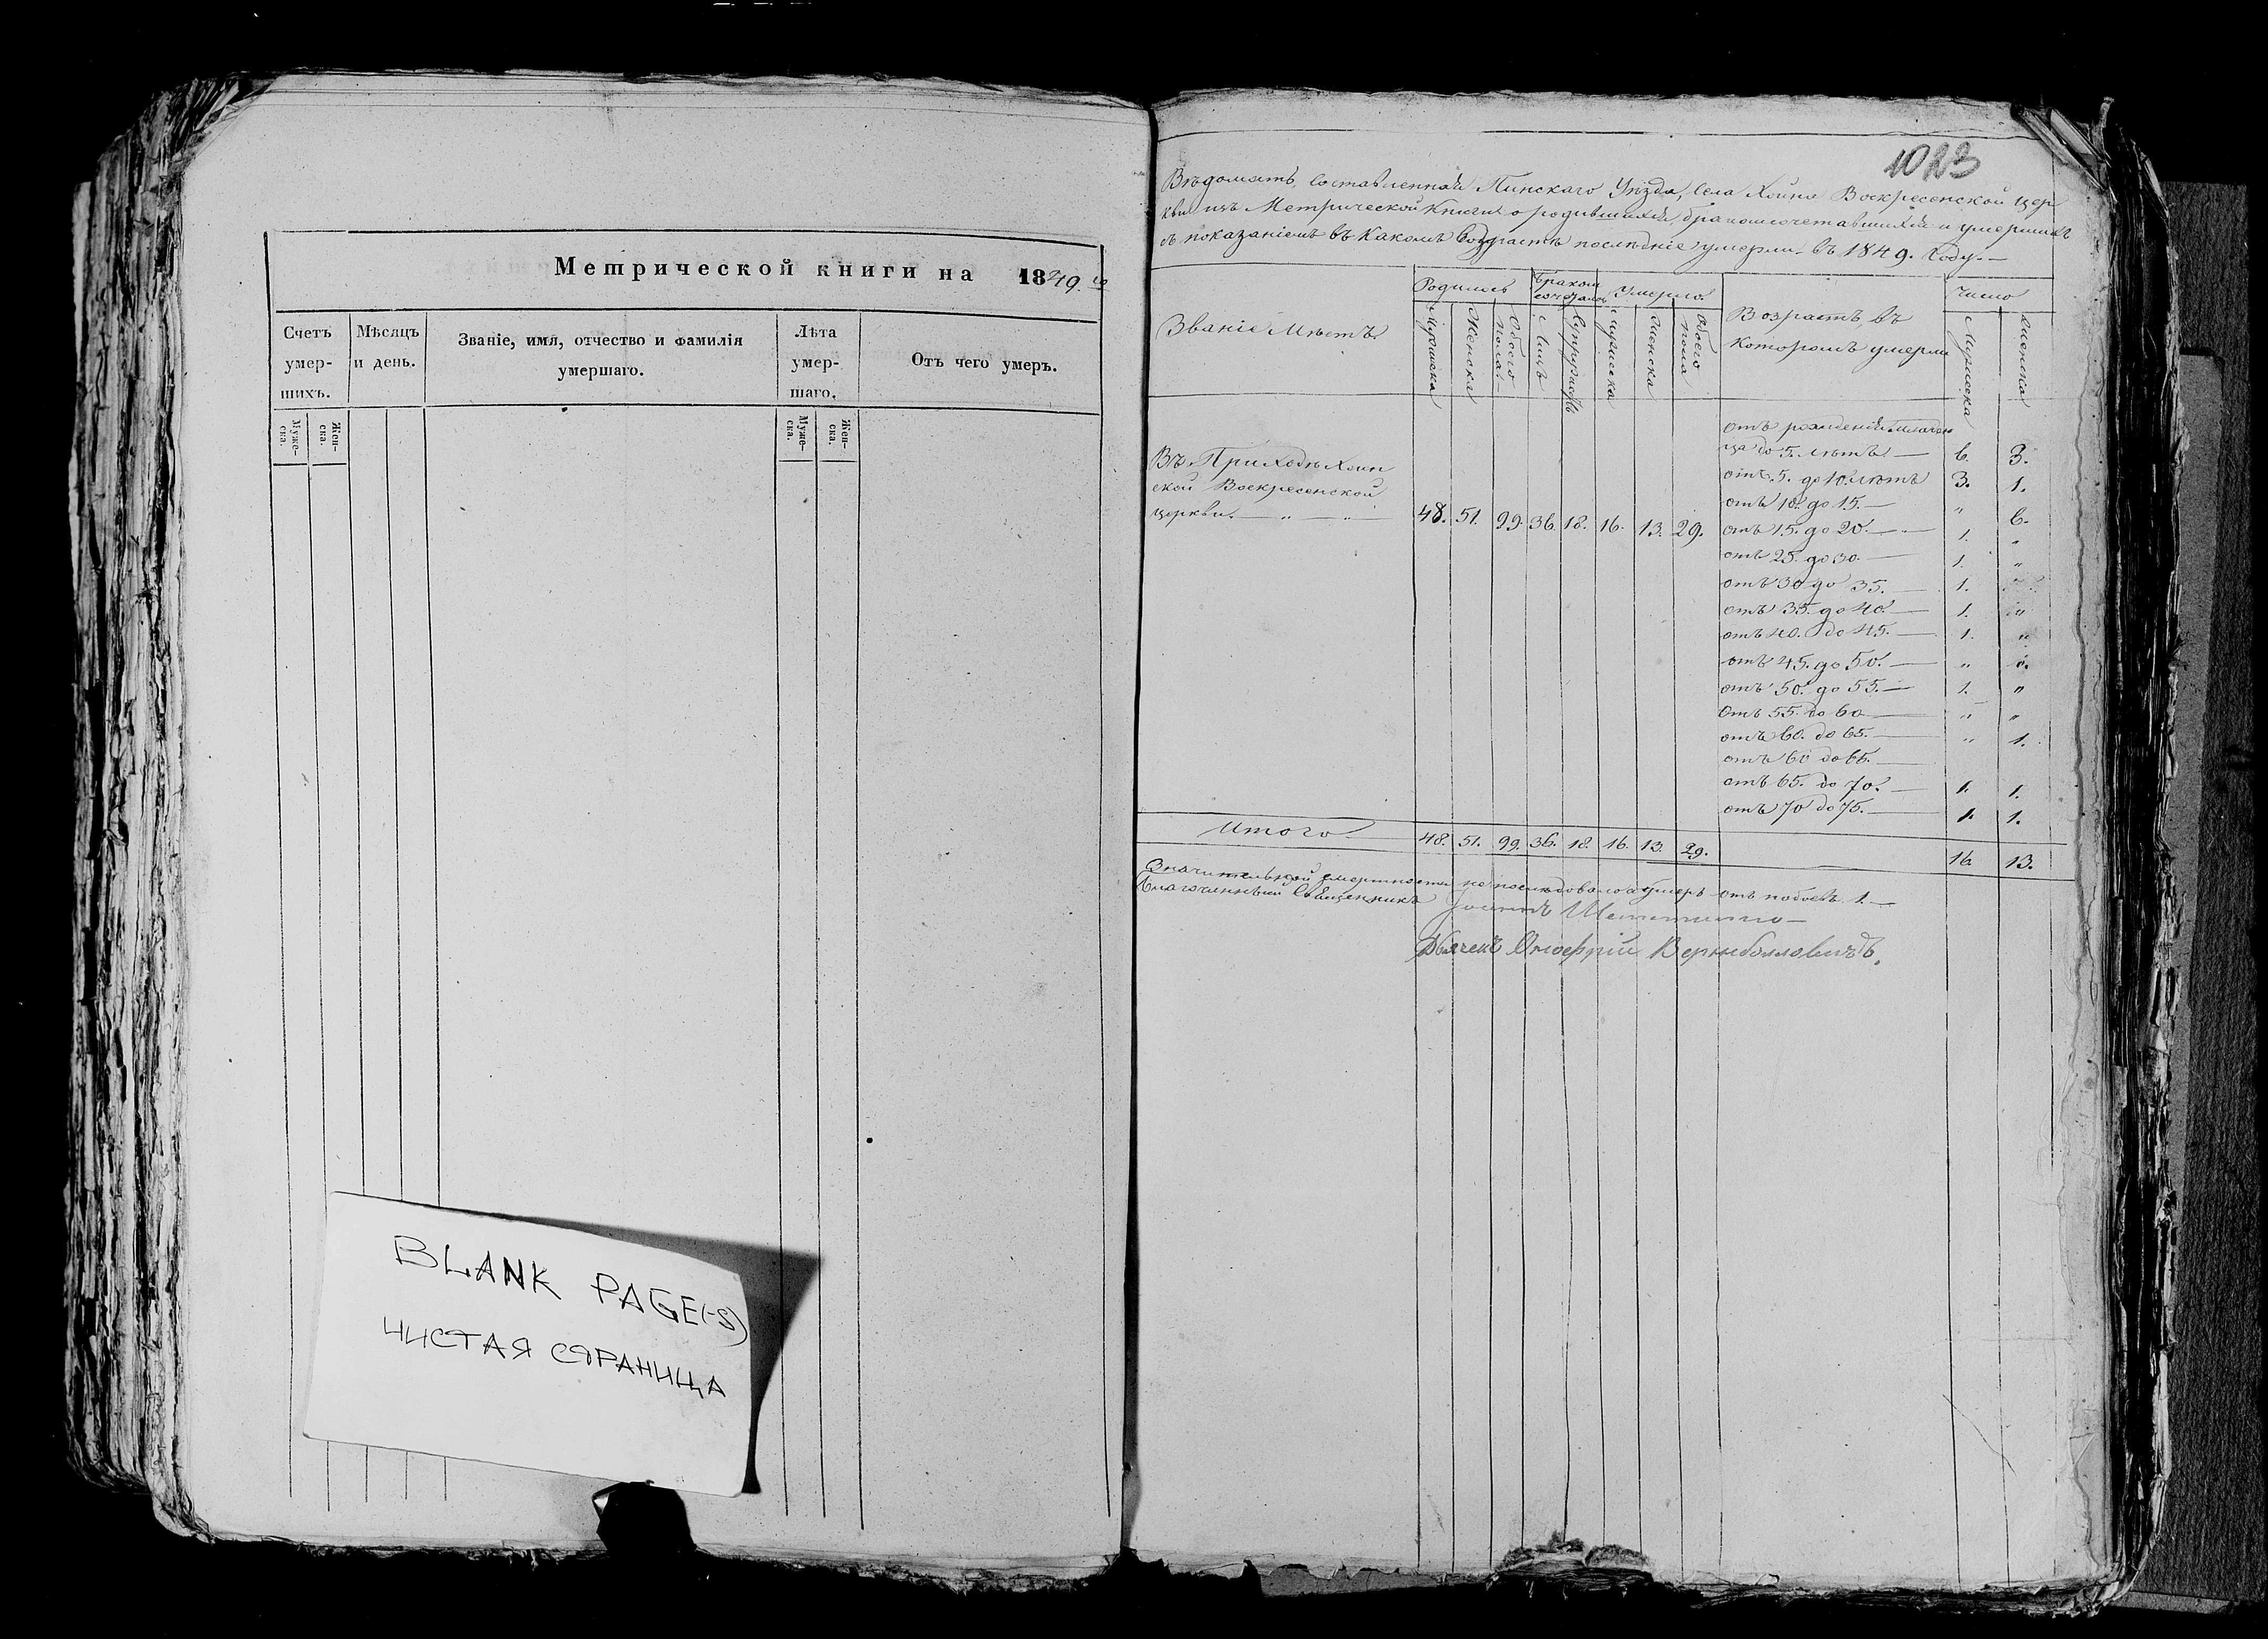 Метрической книги на 1849. го
Счетъ умер-шихъ.
Мѣсяцъ и день.
Званіе, имя, отчество и фамилія умершаго.
Лѣта умер-шаго.
Отъ чего умеръ.
Муже-ска.
Жен-ска.
Муже-ска.
Жен-ска.
BLANK PAGE(-S)
ЧИСТАЯ СТРАНИЦА
1023
Вѣдомость, составленная Пинскаго Уѣзда, Села Хойна Воскресенской цер
кви изъ Метрической Книги о родившихся, бракомсочетавшихся и умершихъ
съ показаніемъ въ какомъ возрастѣ послѣдніе умерли въ 1849. Году.—
Званіе Мѣстъ.
Родилось
Бракомъ сочетались
Умерло.
Возрастъ, въ которомъ умерли
Число
Мужеска
Женска
Обоего пола.
Лицъ
Супружествъ
Мужеска
Женска
Обоего пола
Мужеска
Женска
Въ Приходѣ Хоин
ской Воскресенской
церкви. — „ — „ — 48. 51. 99. 36. 18. 16. 13. 29.
отъ рожденія младен
ца до 5. лѣтъ — 6. 3.
отъ 5. до 10. лѣтъ 3. 1.
отъ 10. до 15. — „ 6.
отъ 15. до 20. — 1. „
отъ 25. до 30. — 1. „
отъ 30 до 35. — 1.
отъ 35. до 40. — 1. „
отъ 40. до 45. — 1. „
отъ 45. до 50. — „ „
отъ 50. до 55. — 1. „
отъ 55. до 60 — „ „
отъ 60. до 65. — „ 1.
отъ 60 до 65. —
отъ 65. до 70. — 1. 1.
отъ 70 до 75. — 1. 1.
Итого 48. 51. 99. 36. 18. 16. 13. 29. 16 13.
Значительной смертности не послѣдовало а умеръ отъ побоевъ 1.—
Священникъ Іоаннъ
Дьячекъ Онуфрій Вержболловичъ.